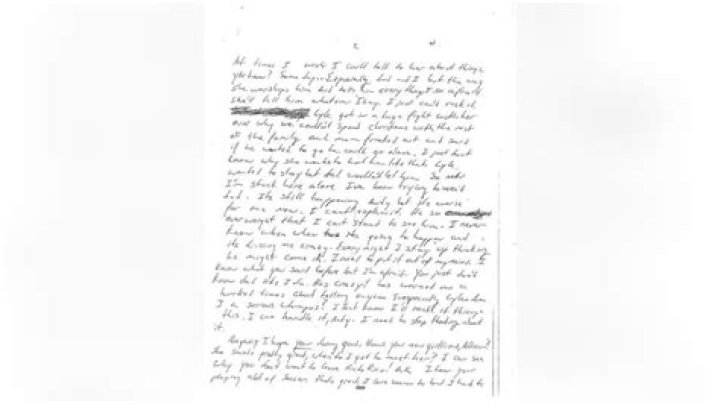 2
At times I wish I could talk to her about things
you know? Some day. Especially dad and I but the way
she worships him and tells him everything I so afraid
she'll tell him whatever I say. I just can't risk it.
Lyle got in a huge fight with her
over why we couldn't spend Christmas with the rest
of the family and mom freaked out and said
if he wanted to go he could go alone. I just dont
know why she wants to hurt him like that. Lyle
wanted to stay but dad wouldn't let him. So now
I'm stuck here alone. I've been trying to avoid
dad. Its still happening Andy but its worse
for me now. I can't explain it. He so
overweight that I can't stand to see him. I never
know when its going to happen and
its driving me crazy. Every night I stay up thinking
he might come in. I need to put it out of my mind. I
know what you said before but I'm afraid. You just don't
know dad like I do. Hes crazy! has warned me a
hundred times about telling anyone especially Lyle. Am
I a serious I dont know I'll make it through
this. I can handle it, Andy. I need to stop thinking about
it.
Anyway I hope your doing good. Hows your new girlfriend,
She sounds pretty great, when do I get to meet her? I can see
why you dont want to leave I hear your
playing alot of soccer thats great. I love soccer too but I had to